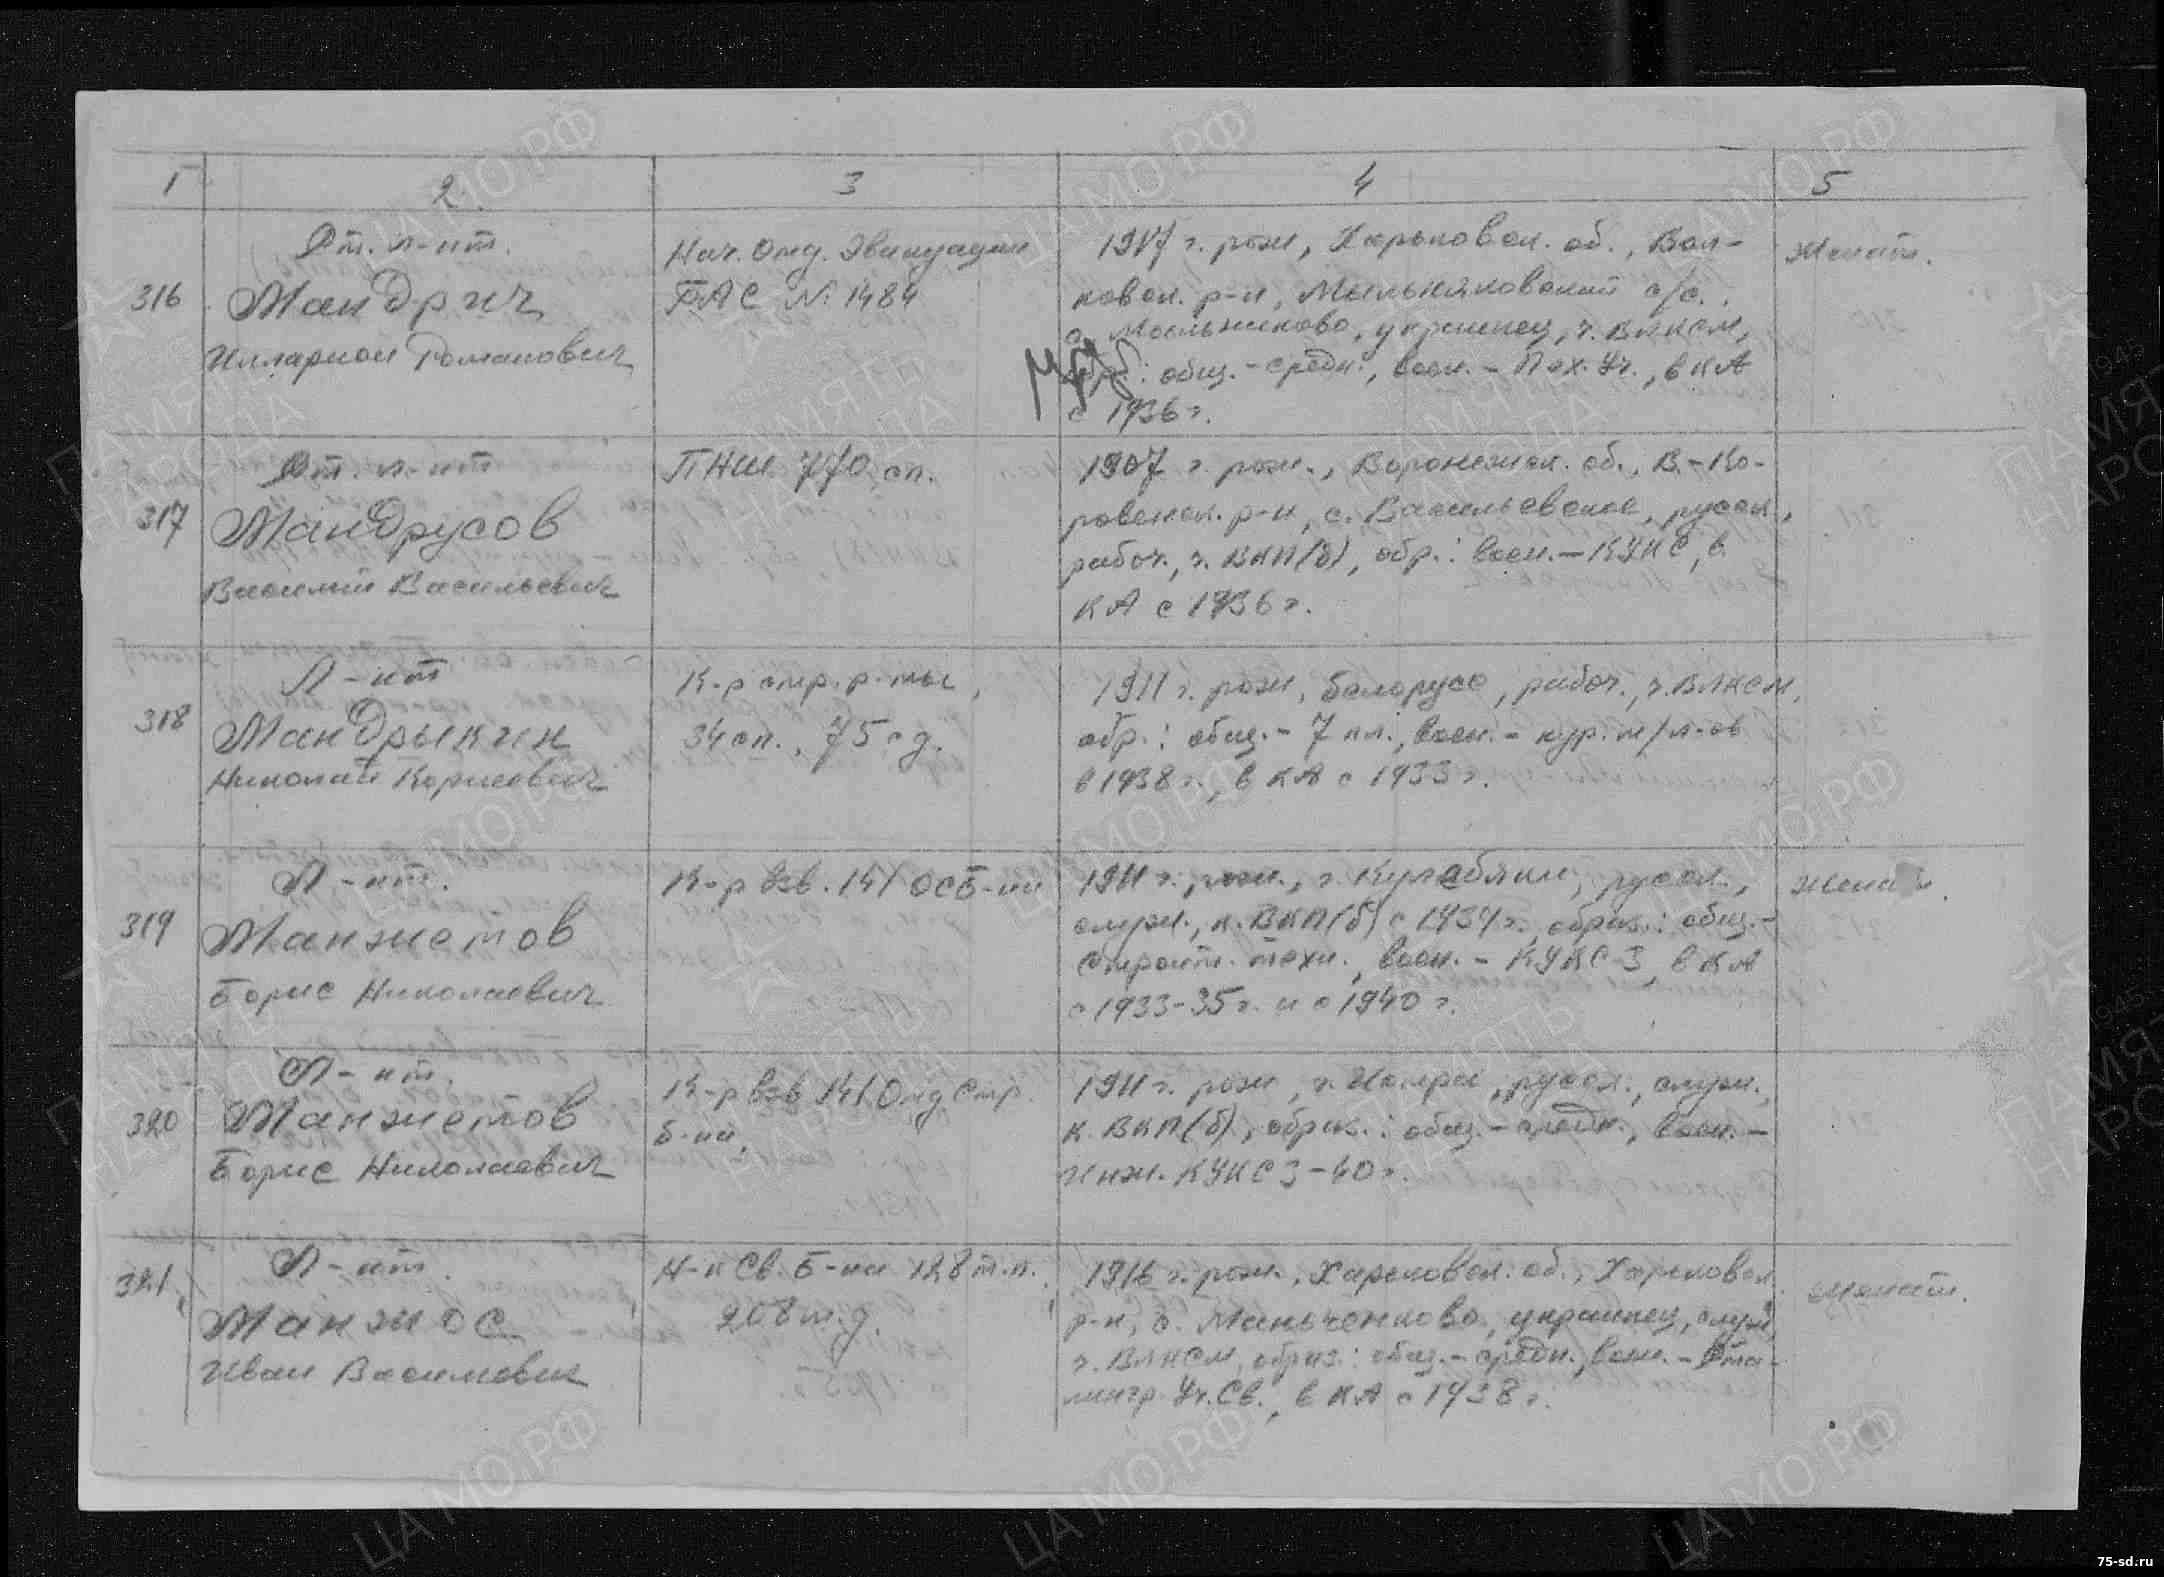 1 2 3 4 5
Ст. л-нт.
316 Мандрич
Илларион Романович
Нач. Отд. Эвакуации
БАС № 1484
1917 г. рож, Харьковск. об., Вол-
ковск. р-н, с/с.,
с. украинец, ч. ВЛКСМ,
обр.: общ. - средн., воен. - Пех. Уч., в КА
с 1936 г.
Женат.
Ст. л-нт
317 Мандрусов
Василий Васильевич
ПНШ 770 сп.
1907 г. рож., Воронежск. об., В.-Ко-
ровенск. р-н, с. Васильевское, русск.,
рабоч., ч. ВКП(б), обр.: воен. - КУКС, в
КА с 1936 г.
Л-нт
318 Мандрыкин
Николай Корнеевич
К-р стр. р-ты,
34 сп., 75 сд.
1911 г. рож, белорусс, рабоч., ч. ВЛКСМ,
обр.: общ. - 7 кл., воен. - кур. м/л-ов
в 1938 г., в КА с 1933 г.
Л-нт.
319 Манжетов
Борис Николаевич
К-р взв. 141 ОСБ-на
1911 г. рож., г. русск.,
служ., к. ВКП(б) с 1934 г., образ.: общ. -
строит. техн., воен. - КУКС З, в КА
с 1933-35 г. и с 1940 г.
Женат.
Л-нт.
320 Манжетов
Борис Николаевич
К-р взв 141 Отд Стр.
Б-на,
1911 г. рож, г. русск., служ.,
к. ВКП(б), образ.: общ. - средн., воен. -
Инж. КУКС З - 40 г.
Л-нт.
321 Манжос
Иван Васильевич
Н-к Св. Б-на 128 т.п.
208 м.д.
1916 г. рож., Харьковск. об., Харьковск
р-н, с. Маньченково, украинец, служ,
ч. ВЛКСМ, образ.: общ. - средн., воен. - Ста-
лингр. Уч. Св., в КА с 1938 г.
Женат.
ЦА МО РФ
ПАМЯТЬ
НАРОДА
75-sd.ru